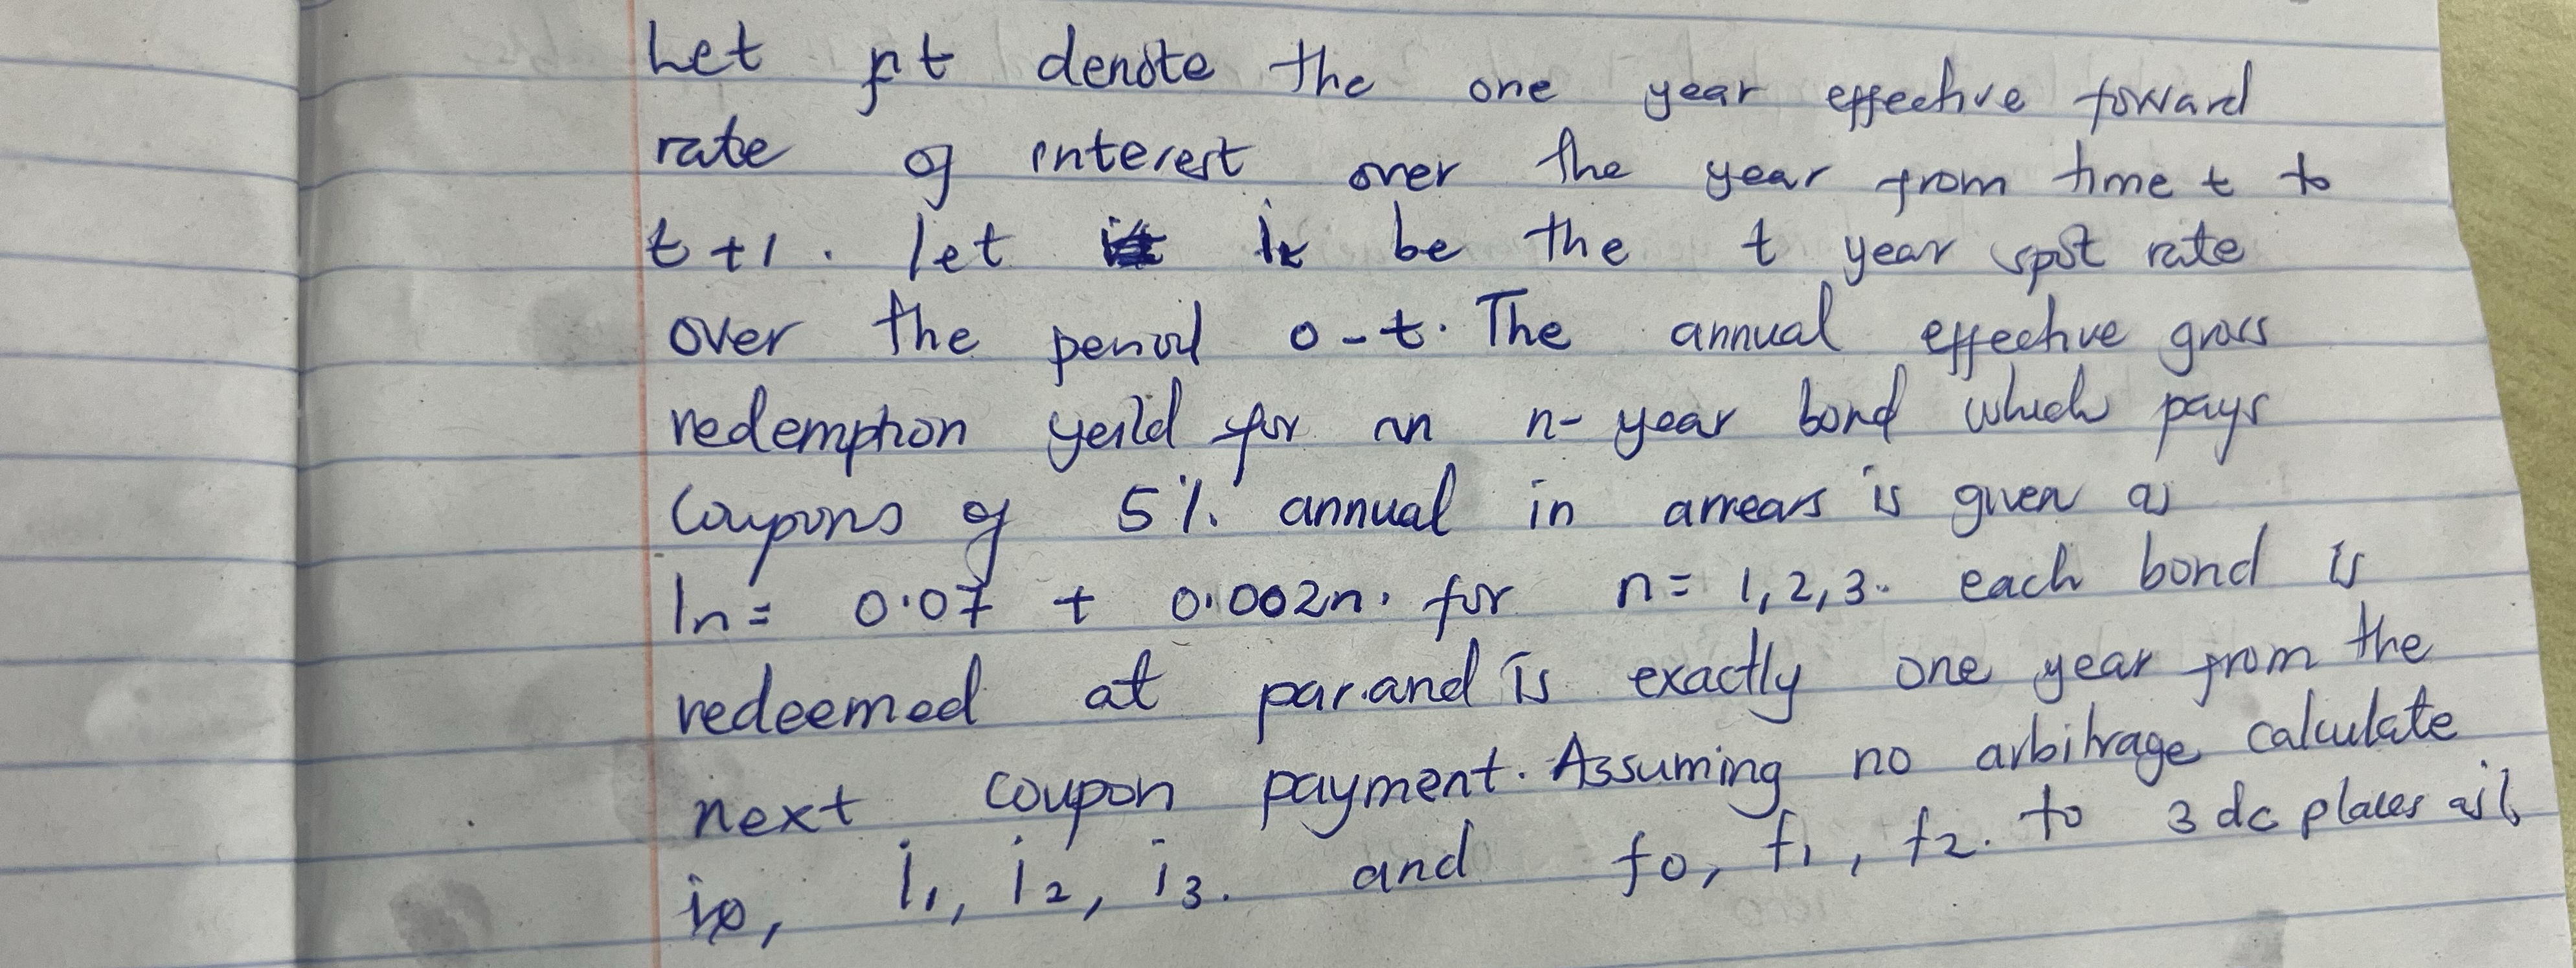 Let ft denote the one year effective forward
rate of interest over the year from time t to
t+1. let it be the t year spot rate
over the period 0-t. The annual effective gross
redemption yeild for an n-year bond which pays
Coupons of 5% annual in arrears is given as
In= 0.07 + 0.002n. for n= 1,2,3. each bond is
redeemed at par.and is exactly one year from the
next coupon payment. Assuming no arbitrage calculate
i1, i2, i3. and f0, f1, f2. to 3 dc places